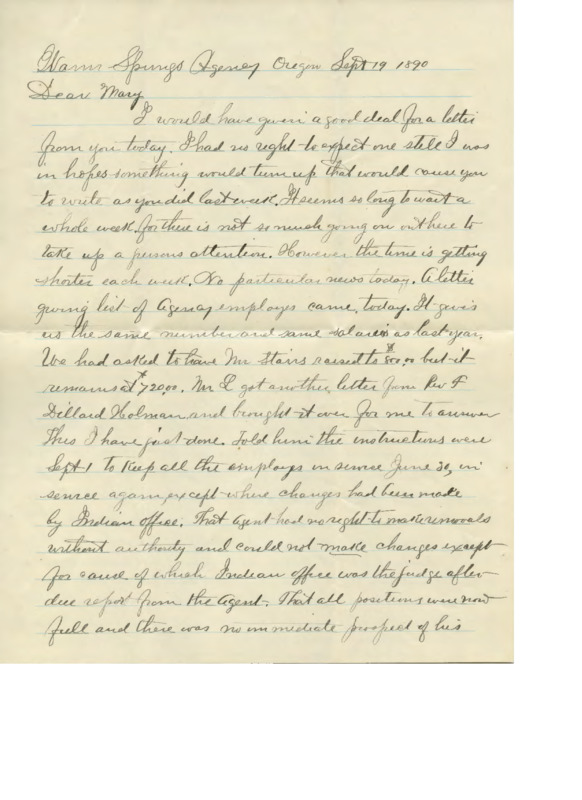 Warm Springs Agency Oregon Sept 19 1890
Dear Mary
I would have given a good deal for a letter
from you today. I had no right to expect one still I was
in hopes something would turn up that would cause you
to write as you did last week. It seems so long to wait a
whole week. for there is not so much going on out here to
take up a persons attention. However the time is getting
shorter each week. No particular news today. A letter
giving list of Agency employes came, today. It gives
us the same number and same salaries as last year.
We had asked to have Mr Stairs raised to $ but it
remains at $720.00. Mr L got another, letter from Rev F
Dillard Holman and brought it over for me to answer
This I have just done. Told him the instructions were
Sept 1 to Keep all the employes in service June 30, in
service again, except where changes had been made
by Indian office. That agent had no right to make removals
without authority and could not make changes except
for cause of which Indian office was the judge after
due report from the Agent. That all positions were now
full and there was no immediate prospect of his